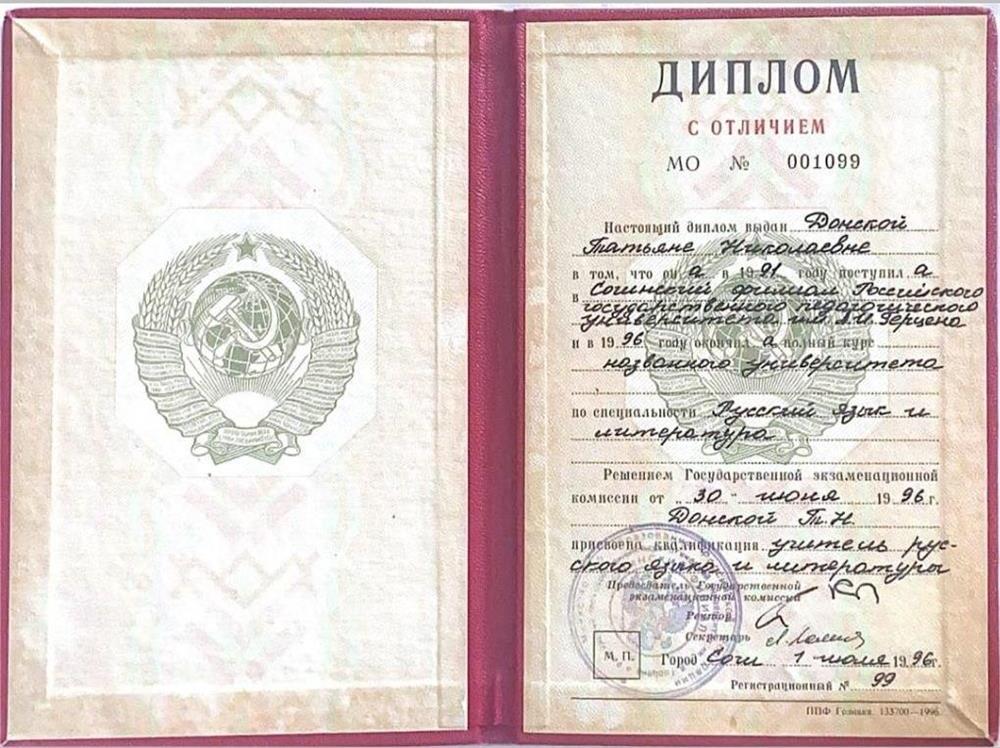 ДИПЛОМ
С ОТЛИЧИЕМ
МО № 001099
Настоящий диплом выдан Донской
Татьяне Николаевне
в том, что он а в 1991 году поступил а
в Сочинский филиал Российского
государственного педагогического
университета им. А.И. Герцена
и в 1996 году окончил а полный курс
названного университета
по специальности Русский язык и
литература
Решением Государственной экзаменационной
комиссии от „30" июня 1996 г.
Донской Т.Н.
присвоена квалификация учитель рус-
ского языка и литературы
Председатель Государственной
экзаменационной комиссии
Ректор
Секретарь
М. П.
Город Сочи 1 июля 1996 г.
Регистрационный № 99
ППФ Гознака. 133700—1996.